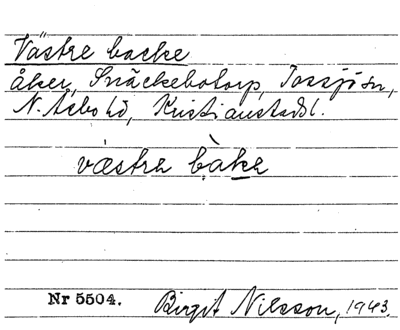 Västre backe
åker, Snäckebotorp, Tossjön,
N. Åsbo hd, Kristianstads l.
västra bàka
Nr 5504.
Birgit Nilsson, 1943.